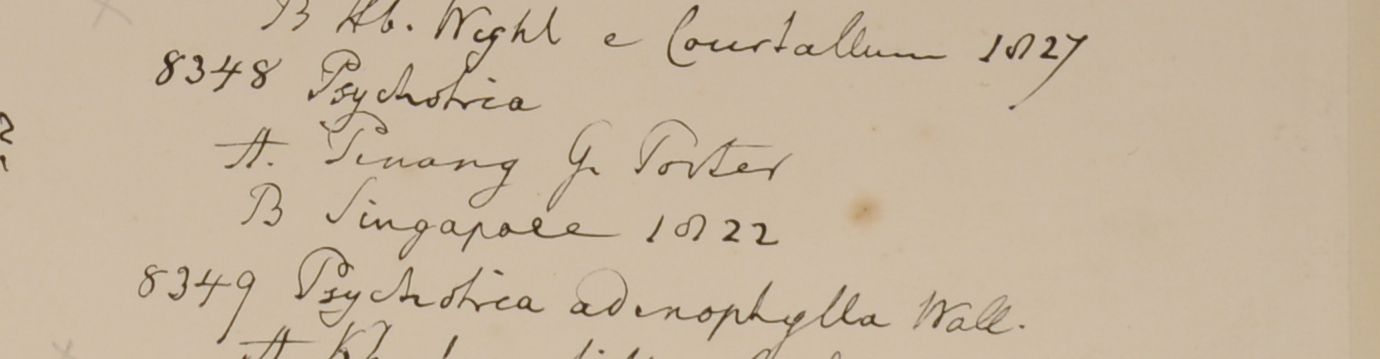 B Hb. Wight e Courtallum 1827
8348 Psychotria
A. Pinang G. Porter
B Singapore 1822
8349 Psychotria adenophylla Wall.
A